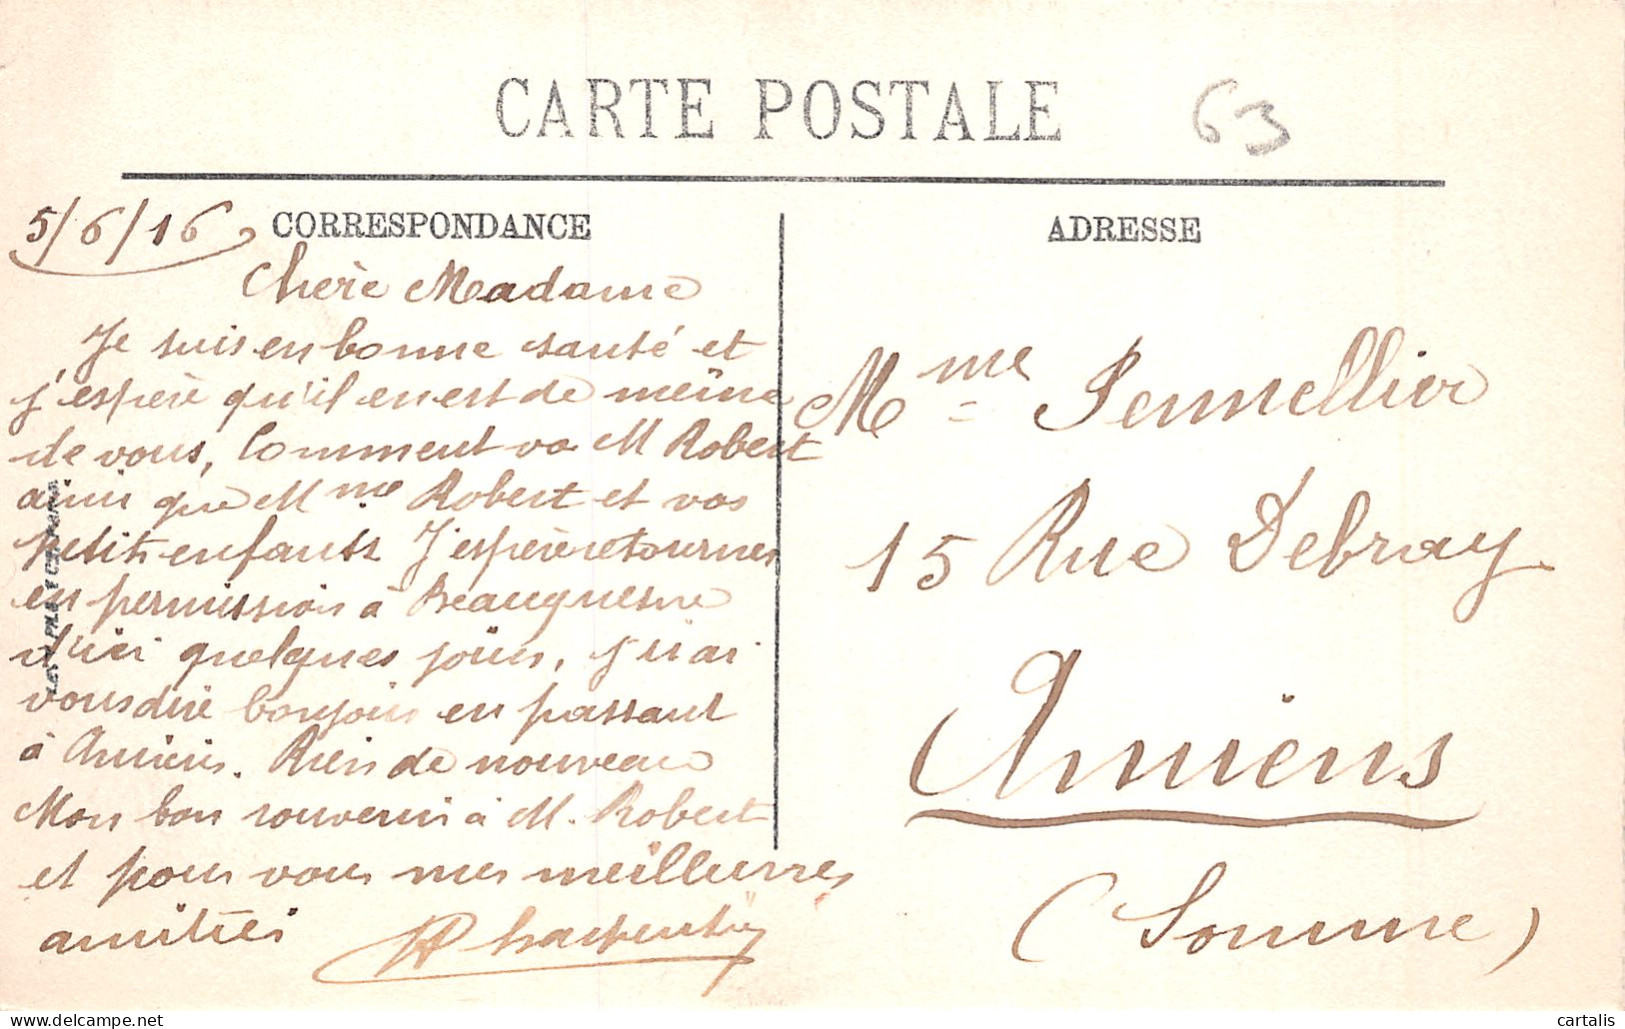 CARTE POSTALE
63
5/6/16
CORRESPONDANCE
Chère Madame
Je suis en bonne santé et
j'espère qu'il en est de même
de vous, Comment va M Robert
ainsi que Mme Robert et vos
petits enfants J'espère retourner
en permission à Beauquesne
d'ici quelques jours, j'irai
vous dire bonjour en passant
à Amiens. Rien de nouveau
Mon bon souvenir à M. Robert
et pour vous mes meilleurres
amitiés
ADRESSE
Mme
15 Rue Debray
Amiens
(Somme)
cartalis